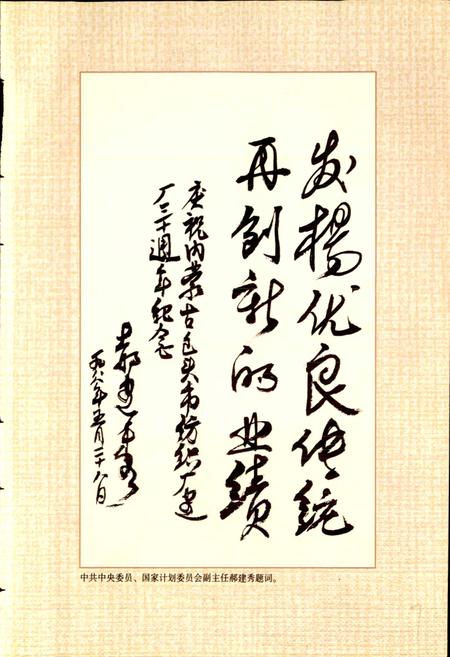 发扬优良传统
再创新的业绩
庆祝内蒙古包头市纺织厂建
厂三十週年纪念
郝建秀
一九八八年五月二十八日
中共中央委员、国家计划委员会副主任郝建秀题词。